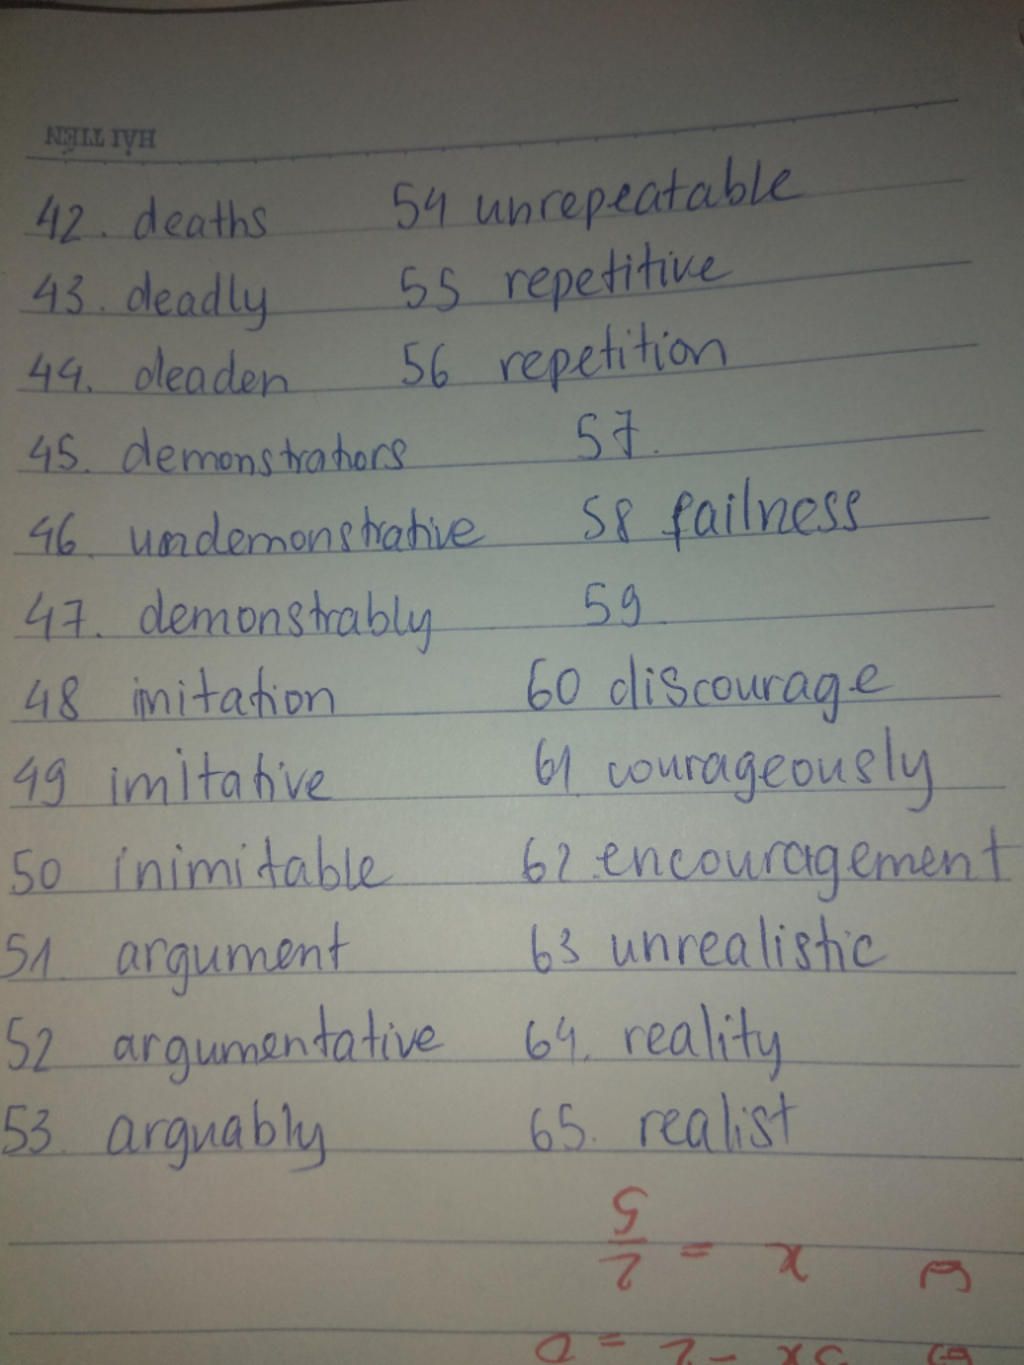 HẢI TIẾN
42. deaths
43. deadly
44. deaden
45. demonstrators
46. undemonstrative
47. demonstrably
48 imitation
49 imitative
50 inimitable
51. argument
52 argumentative
53. arguably
54 unrepeatable
55 repetitive
56 repetition
57.
58 failness
59
60 discourage
61 courageously
62. encouragement
63 unrealistic
64. reality
65. realist
⇔ 5x - 2 = 0
⇔ x = 2/5